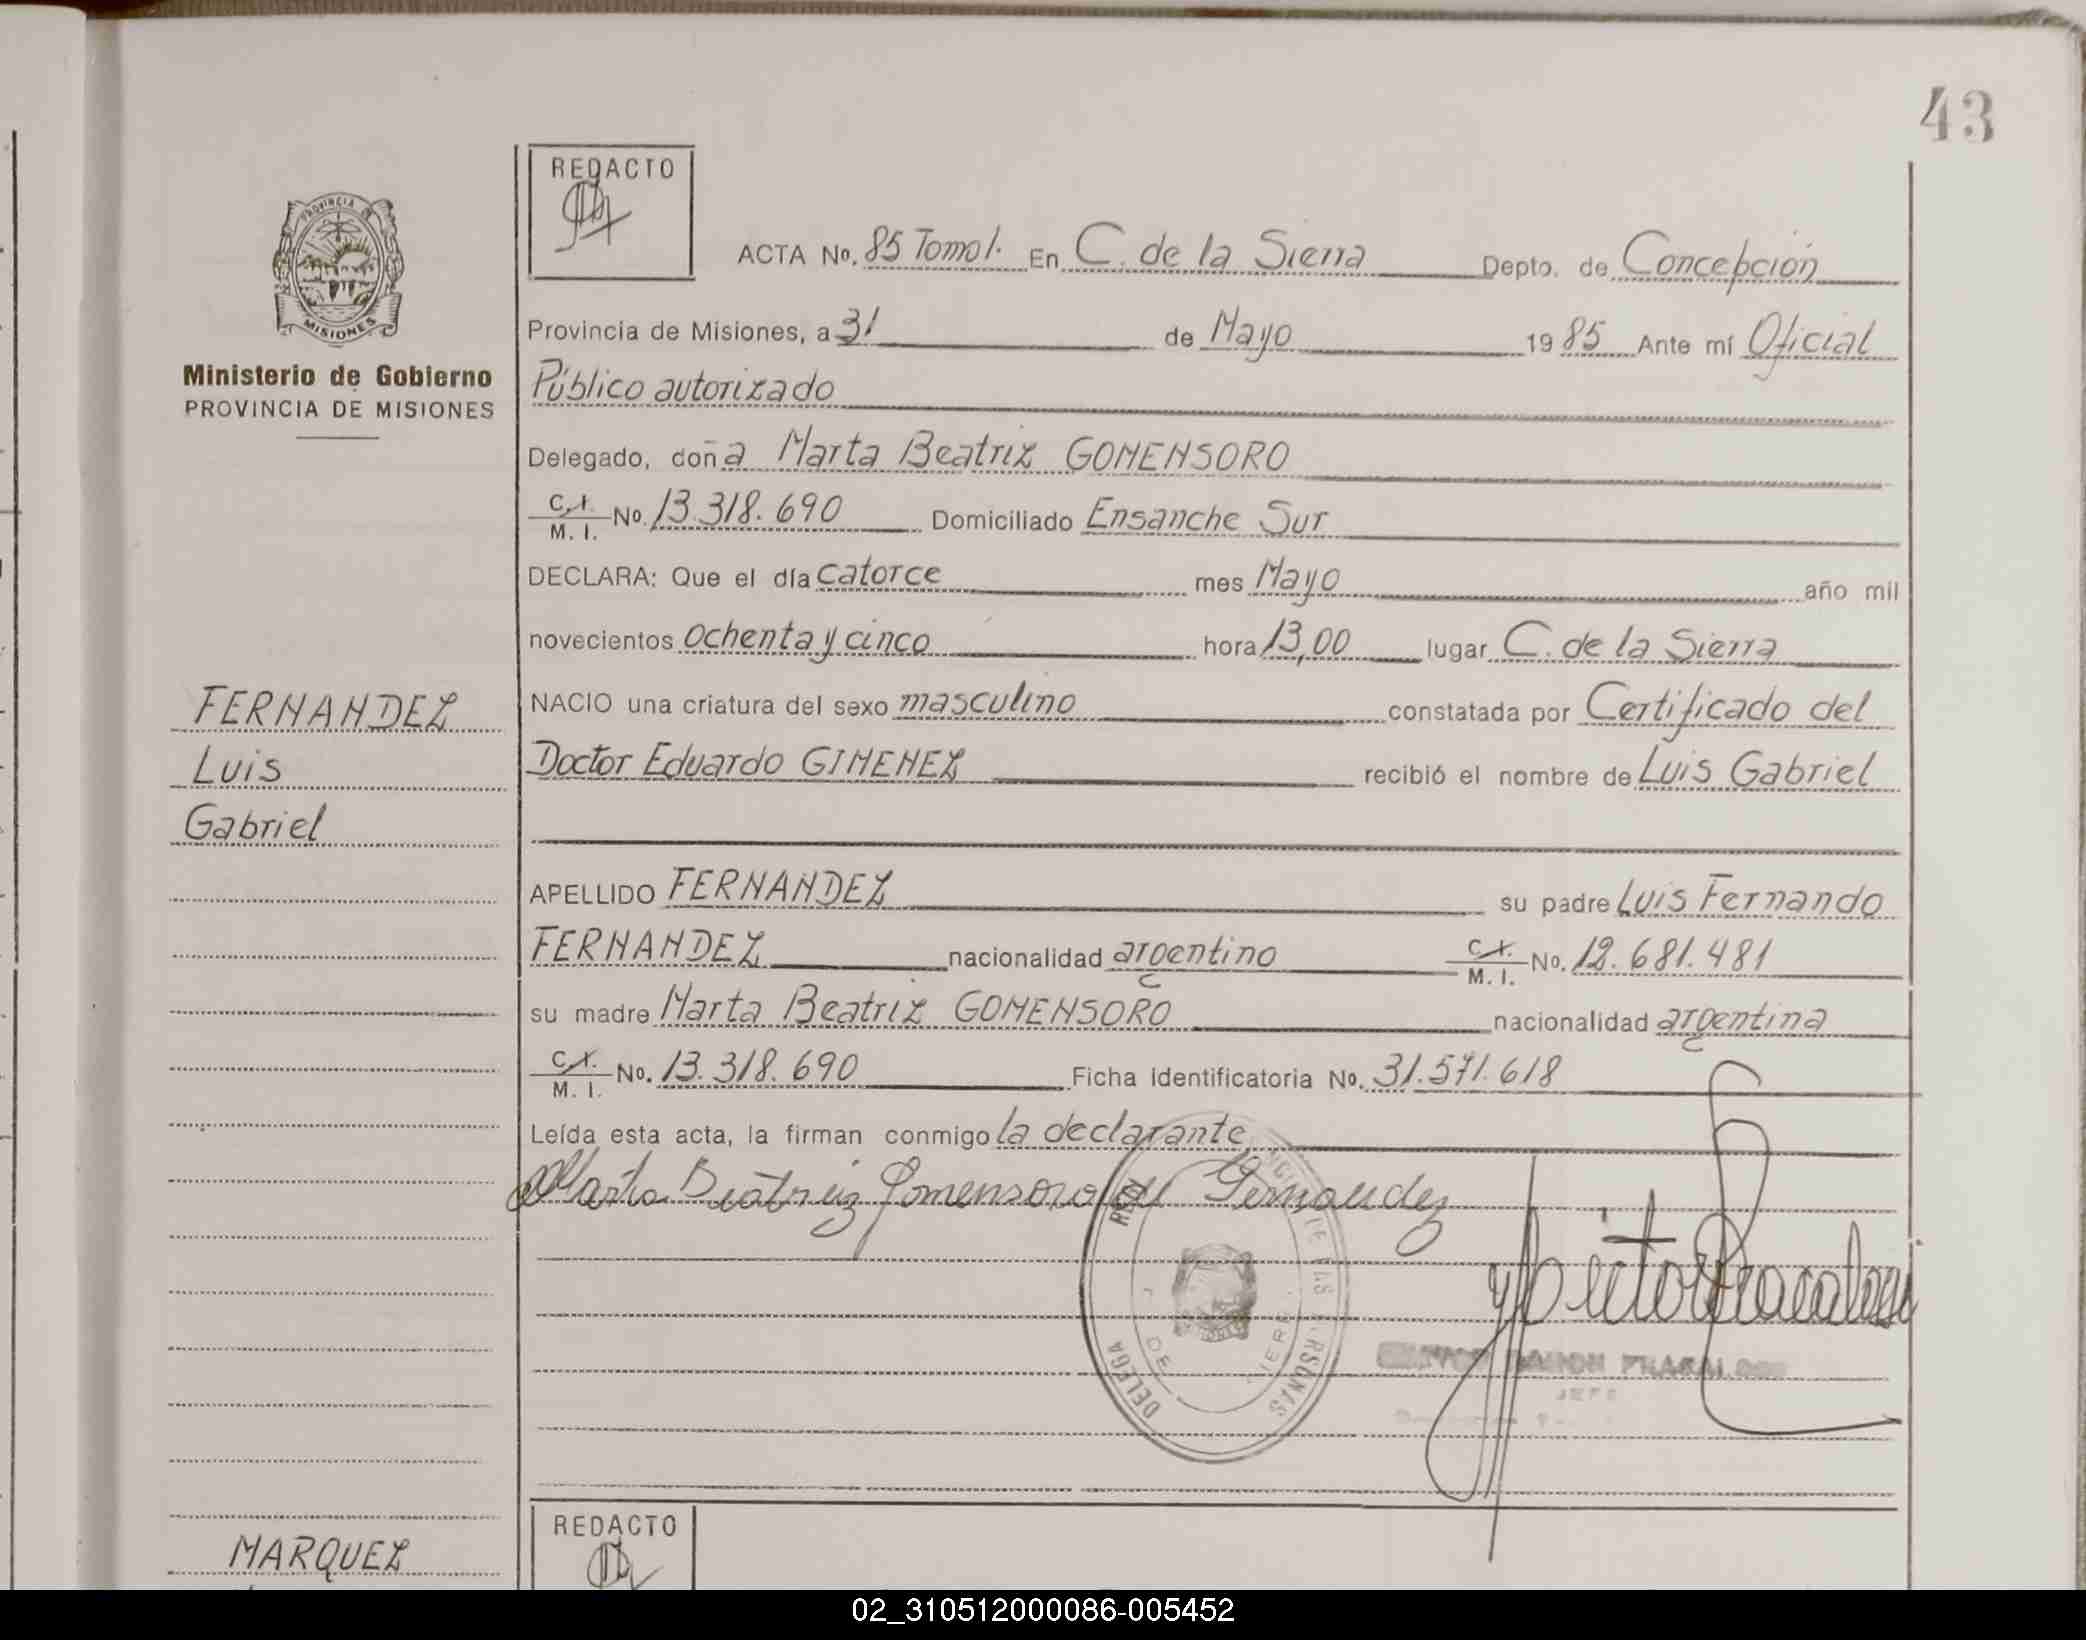 43
REDACTO
PROVINCIA DE
MISIONES
Ministerio de Gobierno
PROVINCIA DE MISIONES
ACTA No. 85 Tomo I. En C. de la Sierra Depto. de Concepción
Provincia de Misiones, a 31 de Mayo 1985 Ante mí Oficial
Público autorizado
Delegado, doña Marta Beatriz GOMENSORO
C.I.
M. I. No. 13.318.690 Domiciliado Ensanche Sur
DECLARA: Que el día catorce mes Mayo año mil
novecientos ochenta y cinco hora 13,00 lugar C. de la Sierra
NACIO una criatura del sexo masculino constatada por Certificado del
Doctor Eduardo GIMENEZ recibió el nombre de Luis Gabriel
FERNANDEZ
Luis
Gabriel
APELLIDO FERNANDEZ su padre Luis Fernando
FERNANDEZ nacionalidad argentino C.I.
M. I. No. 12.681.481
su madre Marta Beatriz GOMENSORO nacionalidad argentina
C.I.
M. I. No. 13.318.690 Ficha Identificatoria No. 31.571.618
Leída esta acta, la firman conmigo la declarante
Marta Beatriz Gomensoro de Fernandez
DE LAS PERSONAS
DELEGA
DE
RAMON FRACALOSSI
JEFE
MARQUEZ
REDACTO
02_310512000086-005452